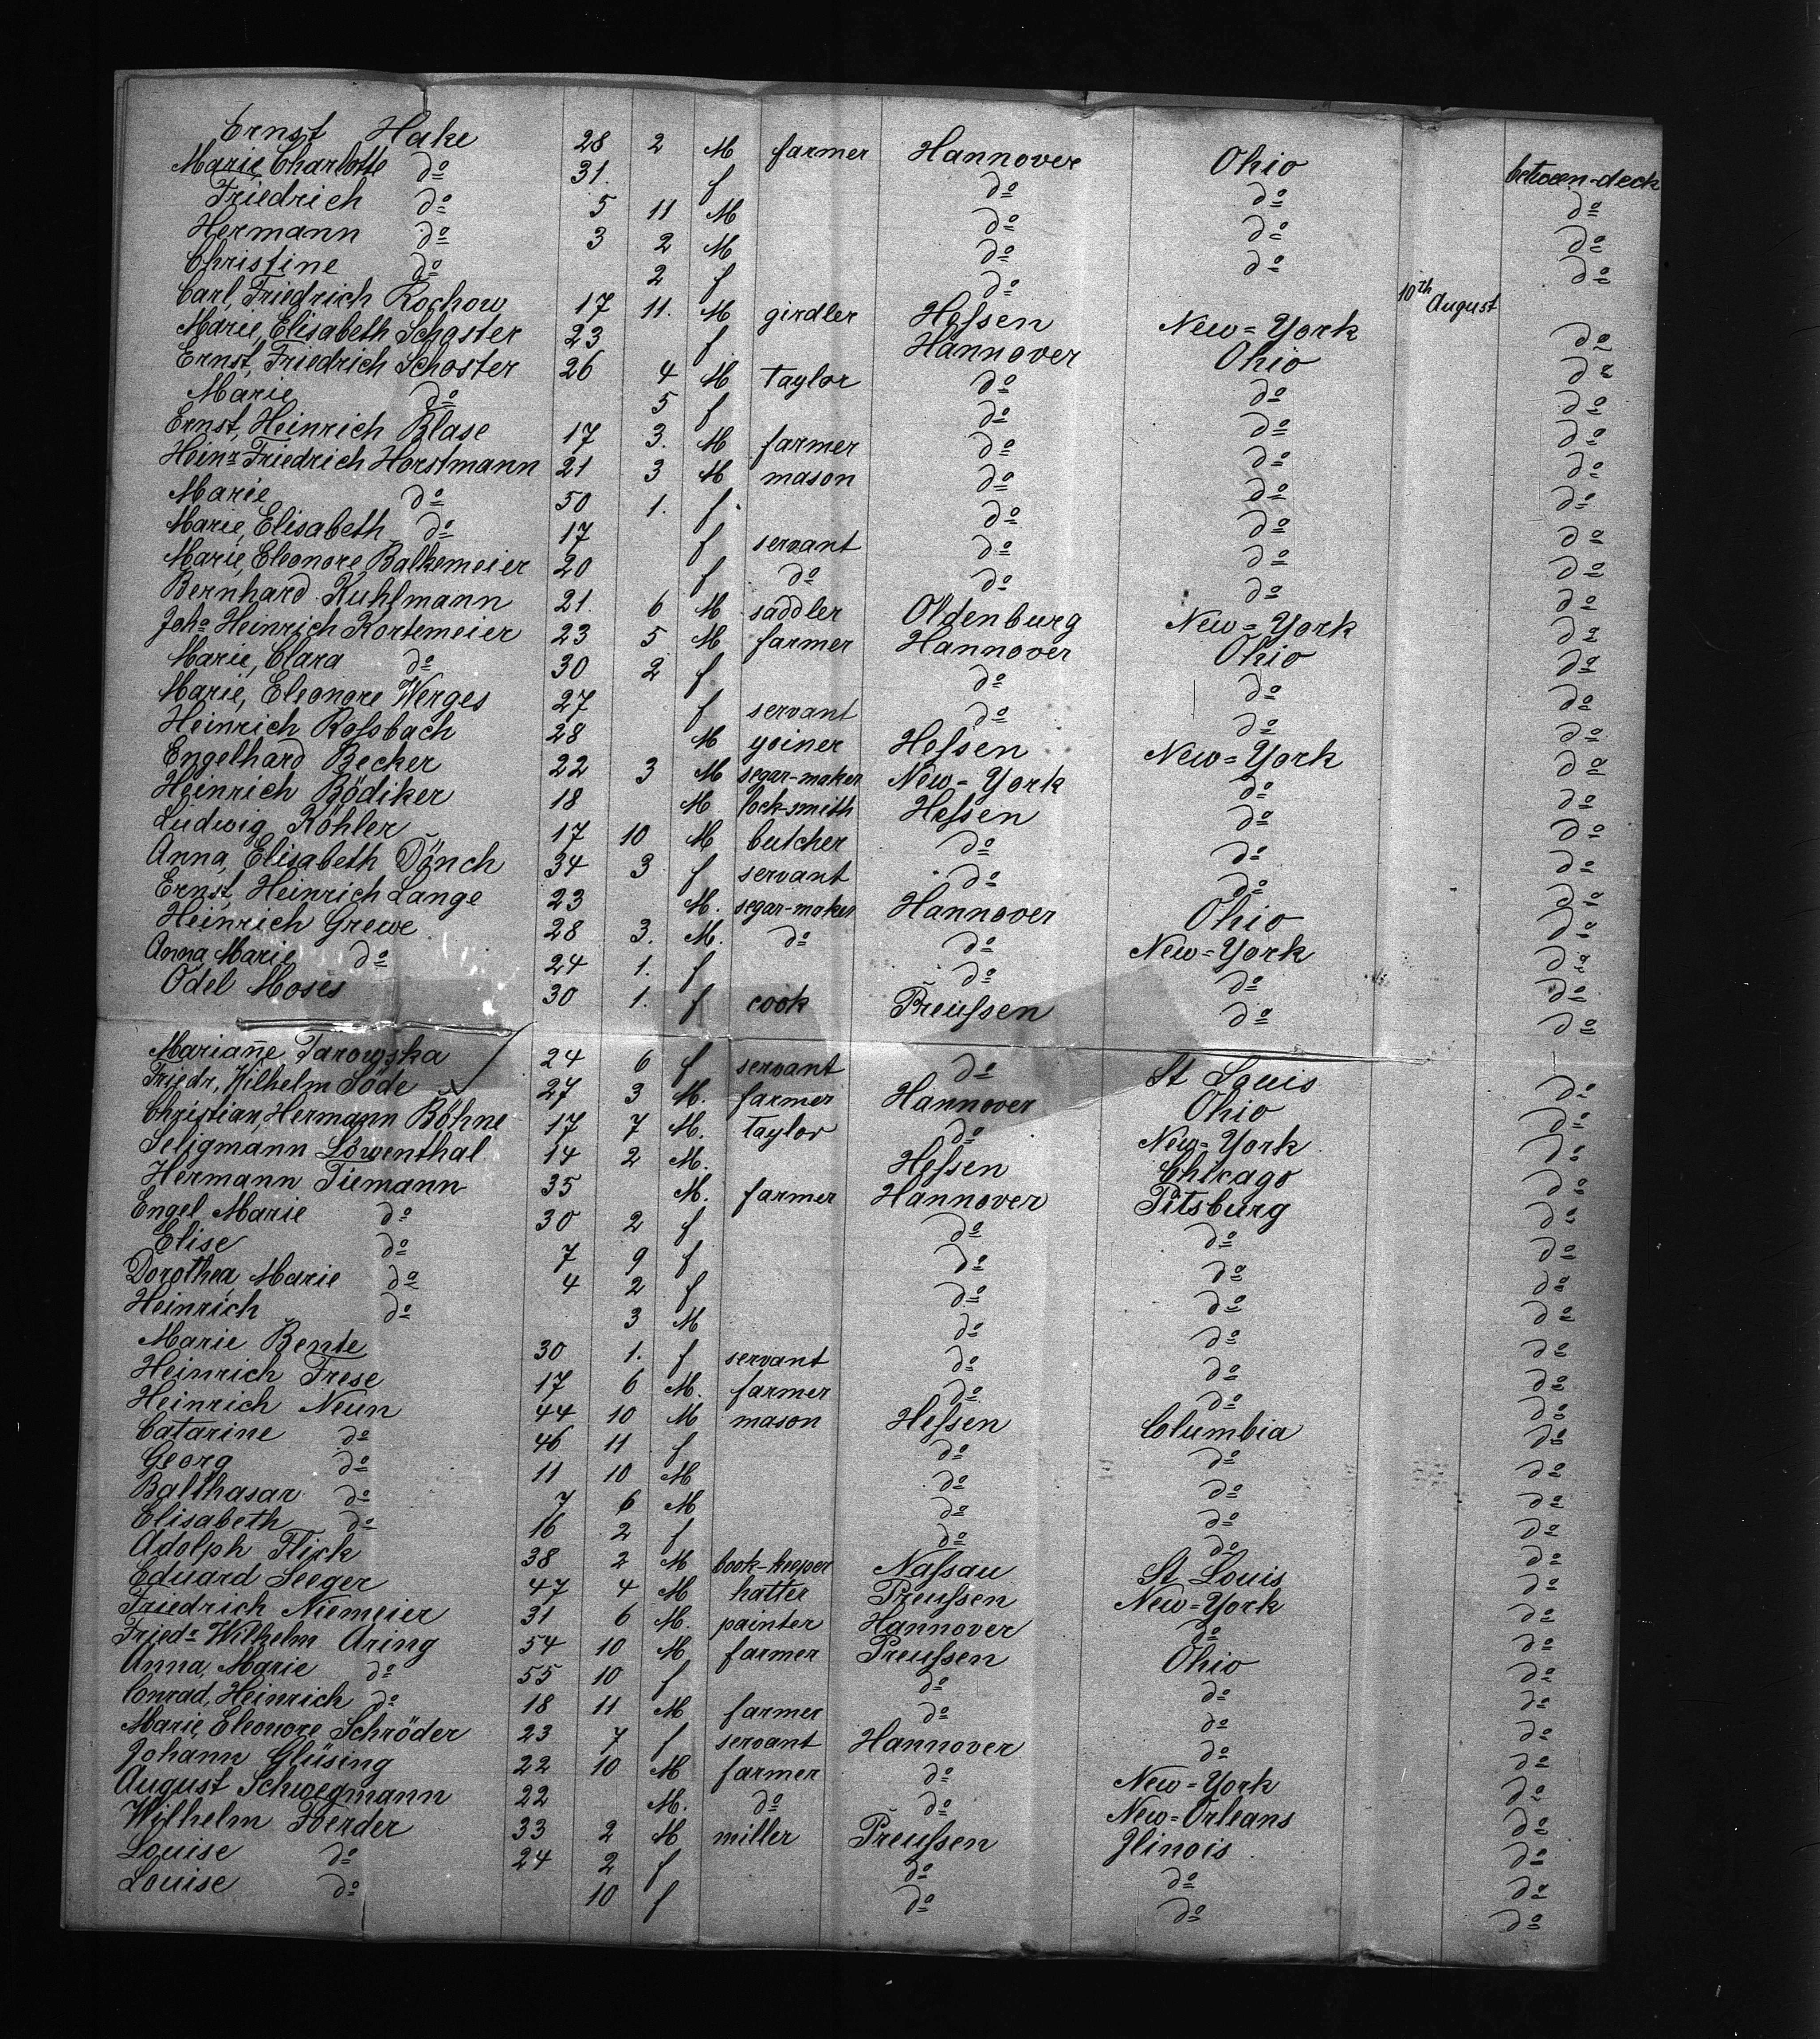 Ernst Hake 28 2 M farmer Hannover Ohio between-deck
Marie, Charlotte do 31. f do do do
Friedrich do 5 11 M do do do
Hermann do 3 2 M do do do
Christine do 2 f do
Carl, Friedrich Rochow 17 11. M girdler Hessen New=York 10th August do
Marie, Elisabeth Schoster 23 f Hannover Ohio do
Ernst, Friedrich Schoster 26 4 M taylor do do do
Marie do 5 f do do do
Ernst, Heinrich Blase 17 3. M farmer do do do
Heinr Friedrich Horstmann 21 3 M mason do do do
Marie do 50 1. f. do do do
Marie, Elisabeth do 17 f servant do do do
Marie, Eleonore Balkemeier 20 f do do do do
Bernhard Kuhlmann 21. 6 M saddler Oldenburg New=York do
Joho Heinrich Kortemeier 23 5 M farmer Hannover Ohio do
Marie, Clara do 30 2 f do do do
Marie, Eleonore Werges 27 f servant do do do
Heinrich Rossbach 28 M yoiner Hessen New=York do
Engelhard Becker 22 3 M segar-maker New=York do do
Heinrich Bödiker 18 M. lock-smith Hessen do do
Ludwig Köhler 17 10 M butcher do do do
Anna, Elisabeth Dönch 34 3 f servant do do do
Ernst, Heinrich Lange 23 M. segar-maker Hannover Ohio do
Heinrich Grewe 28 3. M. do do New=York do
Anna Marie do 24 1. f do do do
Odel Moses 30 1. f cook Preussen do do
Marianne Tarowska 24 6 f servant do St Louis do
Friedr, Wilhelm Söde 27 3 M. farmer Hannover Ohio do
Christian, Hermann Böhne 17 7 M. taylor do New=York do
Seligmann Löwenthal 14 2 M. Hessen Chicago do
Hermann Tiemann 35 M. farmer Hannover Pitsburg do
Engel Marie do 30 2 f do do do
Elise do 7 9 f do do do
Dorothea Marie do 4 2 f do do do
Heinrich do 3 M do do do
Marie Bente 30 1. f servant do do do
Heinrich Frese 17 6 M. farmer do do do
Heinrich Neun 44 10 M mason Hessen Columbia do
Catarine do 46 11 f do do do
Georg do 11 10 M do do do
Balthasar do 7 6 M do do do
Elisabeth do 16 2 f do do do
Adolph Flick 38 2 M book-keeper Nassau St Louis do
Eduard Seeger 47 4 M hatter Preussen New=York do
Friedrich Niemeier 31 6 M. painter Hannover do do
Friedr Wilhelm Aring 54 10 M farmer Preussen Ohio do
Anna, Marie do 55 10 f do do do
Conrad, Heinrich do 18 11 M farmer do do do
Marie, Eleonore Schröder 23 7 f servant Hannover do do
Johann Glüsing 22 10 M farmer do New=York do
August Schwegmann 22 M. do do New=Orleans do
Wilhelm Foerder 33 2 M miller Preussen Jlinois do
Louise do 24 2 f do do do
Louise do 10 f do do do